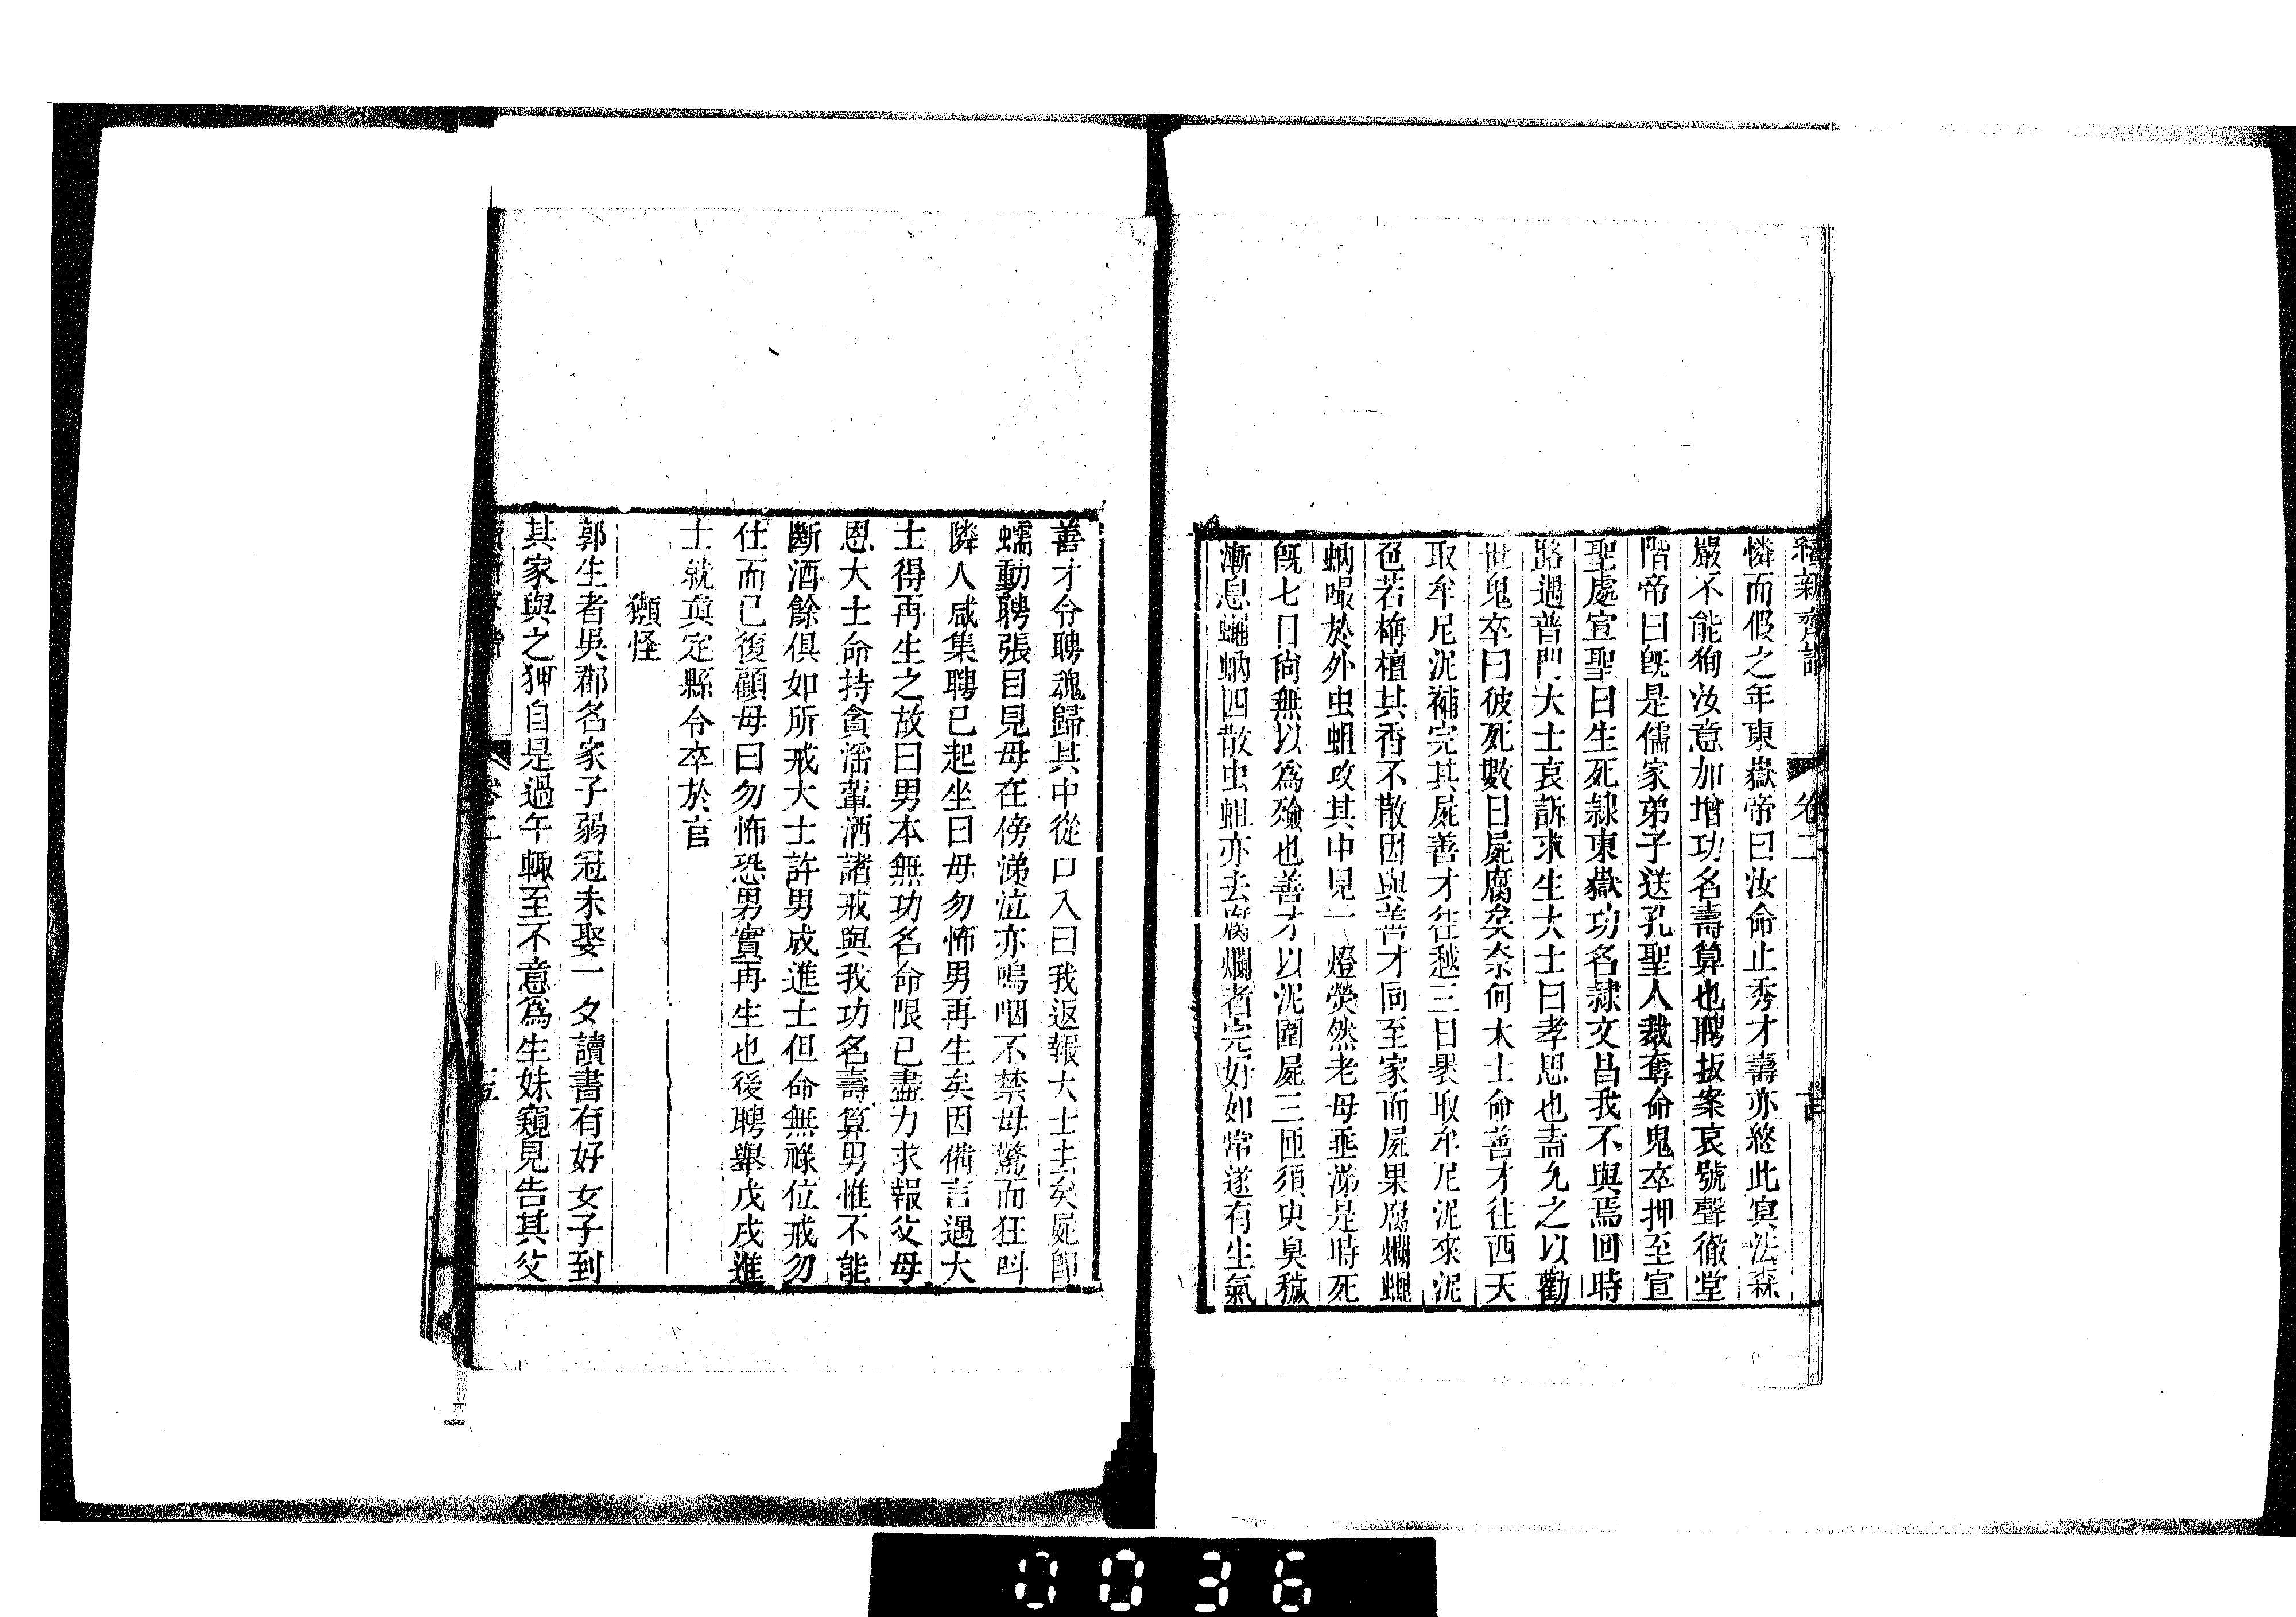 續新齊諧 卷二
憐而假之年東嶽帝曰汝命止秀才壽亦終此冥法森
嚴不能徇汝意加增功名壽算也聘扳案哀號聲徹堂
階帝曰旣是儒家弟子送孔聖人裁奪命鬼卒押至宣
聖處宣聖曰生死隷東嶽功名隷文昌我不與焉回時
路遇普門大士哀訴求生大士曰孝思也盍允之以勸
世鬼卒曰彼死數日屍腐矣奈何大士命善才往西天
取牟尼泥補完其屍善才往越三日裹取牟尼泥來泥
色若栴檀其香不散因與善才同至家而屍果腐爛蠅
蚋嘬於外虫蛆攻其中見一燈熒然老母垂涕是時死
旣七日尙無以爲殮也善才以泥圍屍三匝須臾臭穢
漸息蠅蚋四散虫蛆亦去腐爛者完好如常遂有生氣
善才令聘魂歸其中從口入曰我返報大士去矣屍卽
蠕動聘張目見母在傍涕泣亦嗚咽不禁母驚而狂叫
隣人咸集聘已起坐曰母勿怖男再生矣因備言遇大
士得再生之故曰男本無功名命限已盡力求報父母
恩大士命持貪淫葷酒諸戒與我功名壽算男惟不能
斷酒餘俱如所戒大士許男成進士但命無祿位戒勿
仕而已復顧母曰勿怖恐男實再生也後聘舉戊戌進
士就眞定縣令卒於官
獺怪
郭生者吳郡名家子弱冠未娶一夕讀書有好女子到
其家與之狎自是過午輙至不意爲生妹窺見告其父
卷二 五
0036